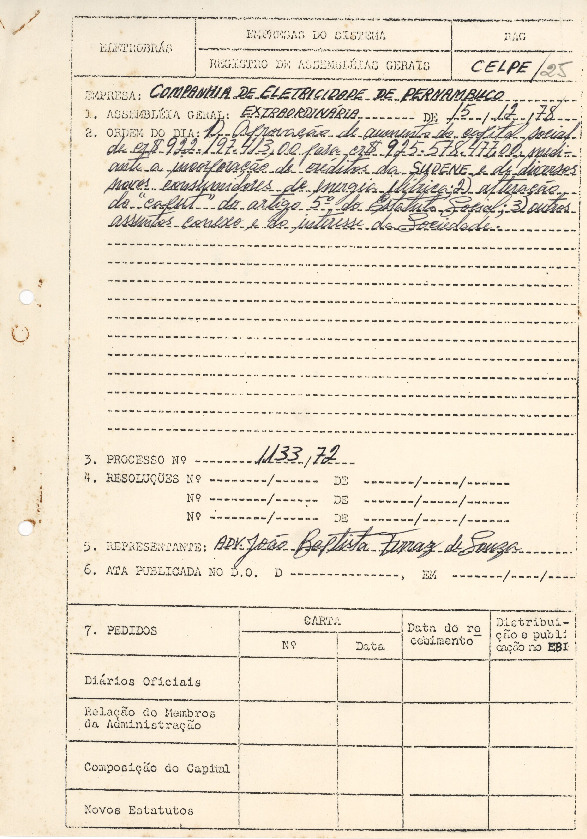 ELETROBRÁS
EMPRESAS DO SISTEMA
DAG
REGISTRO DE ASSEMBLÉIAS GERAIS
CELPE/25
EMPRESA: COMPANHIA DE ELETRICIDADE DE PERNAMBUCO
1. ASSEMBLÉIA GERAL: EXTRAORDINÁRIA DE 15, 12, 78
2. ORDEM DO DIA: 1) Aprovação de aumento do capital social
de cr$ 922.197.413,00 para cr$ 925.578.477,00 medi-
ante a incorporação de créditos da SUDENE e de diversos
novos consumidores de energia elétrica; 2) alteração
do "caput" do artigo 5º do Estatuto Social; 3) outros
assuntos conexo e do interesse da Sociedade.
3. PROCESSO Nº 1133/72
4. RESOLUÇÕES Nº -------/------ DE -------/----/-----
Nº -------/------ DE -------/----/-----
Nº -------/------ DE -------/----/-----
5. REPRESENTANTE: ADV. João Baptista Ferraz de Souza
6. ATA PUBLICADA NO D.O. D ------------, EM -------/----/----
7. PEDIDOS
CARTA
Nº
Data
Data do re
cebimento
Distribui-
ção e publi
cação no EBI
Diários Oficiais
Relação do Membros
da Administração
Composição do Capital
Novos Estatutos